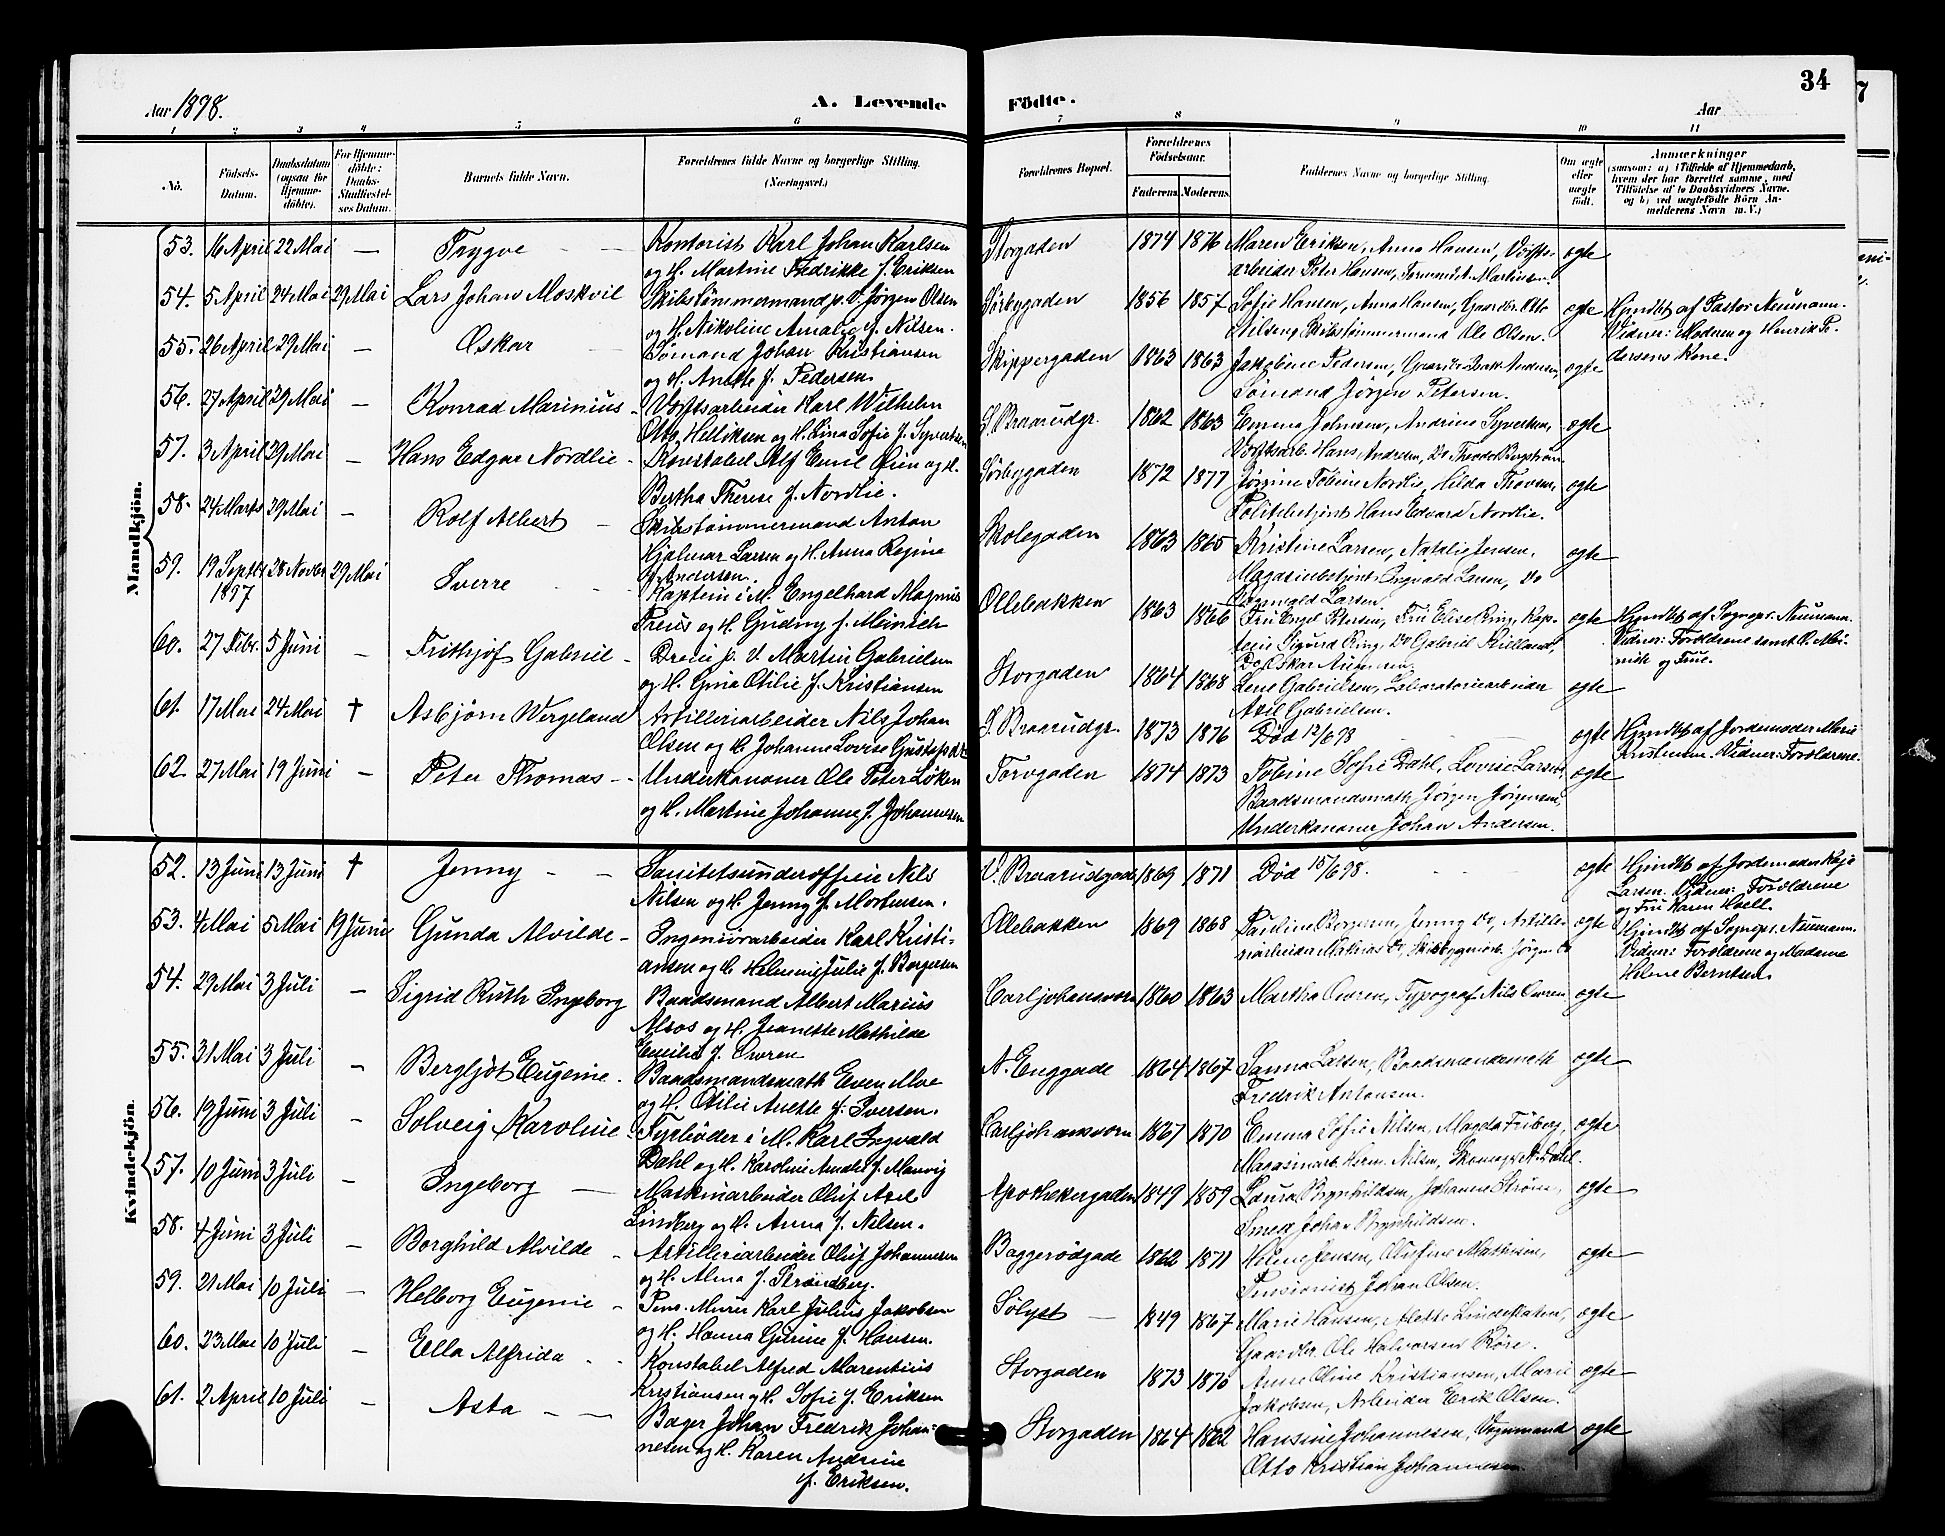 34
Aar 1898.
A. Levende
Födte.
Aar
1 2 3 4 5 6 7 8 9 10 11
No.
Födsels-Datum.
Daabsdatum (ogsaa for Hjemmedöbte).
For Hjemmedöbte: Daabs-Stadfæstelses Datum.
Barnets fulde Navn.
Forældrenes fulde Navne og borgerlige Stilling. (Næringsvei.)
Forældrenes Bopæl.
Forældrenes Födselsaar.
Faderens. Moderens.
Faddernes Navne og borgerlige Stilling.
Om ægte eller uægte født.
Anmærkninger
(saasom: a) i Tilfælde af Hjemmedaab, hvem der har forrettet samme, med Tilföielse af to Daabsvidners Navne, og b) ved uægtefödte Börn Anmelderens Navn m. V.)
Mandkjön.
53. 16 April 22 Mai — Trygve — — Kontorist Karl Johan Karlsen
og H. Martine Fredrikke f. Eriksen
Storgaden 1874 1876 Maren Eriksen, Anna Hansen, Værfts-
arbeider Peter Hansen, A. Martinsen. ægte
54. 5 April 24 Mai 29 Mai Lars Johan Moskvil Skibstömmermand p. V. Jörgen Olsen
og H. Nikoline Amalie f. Nilsen.
Sörbygaden 1856 1857 Sofie Hansen, Anna Hansen, Gaardbr. Otto
Nilsen, Skibstömmermand Ole Olsen. ægte Hjmdbt af Pastor Neumann.
Vidner: Moderen og Henrik Pe-
dersens Kone.
55. 26 April 29 Mai — Oskar — Sömand Johan Kristiansen
og H. Anette f. Pedersen
Skippergaden 1863 1863 Jakobine Pedersen, Andersen,
Sömand Jörgen Petersen. ægte
56. 27 April 29 Mai — Konrad Marinius — Værftsarbeider Karl Wilhelm
Otto Helliksen og H. Lina Sofie f. Syvertsen
S. Braarudgr. 1862 1863 Emma Johnsen, Andrine Syvertsen,
Værftsarb. Hans Andresen, Do Theodor Bergström ægte
57. 3 April 29 Mai — Hans Edgar Nordlie — Konstabel Alf Emil Öien og H.
Bertha Therese f. Nordlie.
Sörbygaden 1872 1877 Jörgine Tobine Nordlie, Hilda Thoresen,
Politibetjent Hans Edvard Nordlie. ægte
58. 24 Marts 29 Mai — Rolf Albert — Skibstömmermand Anton
Hjalmar Larsen og H. Anna Regine
f. Andersen.
Skolegaden 1863 1865 Kristine Larsen, Natalie Jensen,
Magasinbetjent Ingvald Larsen, Do
Larsen. ægte
59. 19 Septbr 1897 28 Novbr 29 Mai Sverre — Kaptein i M. Engelhard Magnus
og H. Gudny f. Meinich
Ollebakken 1863 1866 Fru Petersen, Fru Elise Ring, Kap-
tein Sigurd Ring, Do Gabriel Kielland,
Do Oskar ægte Hjmdbt af Sognepr. Neumann.
Vidner: Forældrene samt Mei-
nich og Frue.
60. 27 Febr. 5 Juni — Frithjof Gabriel — Dreier p. V. Martin Gabrielsen
og H. Gina Otilie f. Kristiansen
Storgaden 1864 1868 Lene Gabrielsen, Laboratoriearbeider
Axel Gabrielsen. ægte
61. 17 Mai 24 Mai † Asbjörn Wergeland Artilleriarbeider Nils Johan
Olsen og H. Johanne Lovise
S. Braarudgr. 1873 1876 Död 12/6 98 ægte Hjmdbt af Jordemoder Marie
Kristensen. Vidner: Forældrene.
62. 27 Mai 19 Juni — Peter Thomas — Underkanoner Ole Peter Löken
og H. Martine Johanne f. Johannesen
Torvgaden 1874 1873 Tobine Sofie Dahl, Lovise Larsen,
Baadsmandsmath Jörgen Jörgensen,
Underkanoner Johan Andersen. ægte
Kvindekjön.
52. 13 Juni 13 Juni † Jenny — — Sanitetsunderofficier Nils
Nilsen og H. Jenny f. Mortensen.
V. Braarudgade 1869 1871 Död 15/6 98. ægte Hjmdbt af Jordemoder
Larsen. Vidner: Forældrene
og Fru Karen Hvell.
53. 4 Mai 5 Mai 19 Juni Gunda Alvilde — Ingeniörarbeider Karl Kristi-
ansen og H. Helmine Julie f. Borgersen
Ollebakken 1869 1868 Pauline Borgersen, Jenny Do, Artille-
riarbeider Mathias Do, Jörgen Do ægte Hjmdbt af Sognepr. Neumann.
Vidner: Forældrene og Madame
Helene Berntsen.
54. 29 Mai 3 Juli — Sigrid Ruth Ingeborg Baadsmand Albert Marius
Alsos og H. Jeanette Mathilde
Emilie f. Owren
Carljohansværn 1860 1863 Martha Owren, Typograf Nils Owren ægte
55. 31 Mai 3 Juli — Bergljot Eugenie. Baadsmandsmath Even Moe
og H. Otilie Anette f. Iversen.
N. Enggade 1864 1867 Sanna Larsen, Baadsmandsmath
Fredrik Antonsen. ægte
56. 19 Juni 3 Juli — Solveig Karoline — Fyrböder i M. Karl Ingvald
Dahl og H. Karoline Amalie f.
Carljohansværn 1867 1870 Emma Sofie Nilsen, Magda Friberg,
Magasinarb. Herm. Nilsen, Dahl. ægte
57. 10 Juni 3 Juli — Ingeborg — Maskinarbeider Oluf Axel
Lindberg og H. Anna f. Nilsen.
Apothekergaden 1849 1859 Laura Brynhildsen, Johanne Ström,
Smed Johan Brynhildsen. ægte
58. 4 Juni 3 Juli — Borghild Alvilde — Artilleriarbeider Oluf Johannesen
og H. Alma f. Strandberg.
Baggerödgade 1862 1871 Helene Jensen, Olufine Mathisen,
Pensionist Johan Olsen. ægte
59. 21 Mai 10 Juli — Helborg Eugenie — Pens. Murer Karl Julius Jakobsen
og H. Hanna Gurine f. Hansen.
Sölyst — 1849 1867 Marie Hansen, Anette Lindekaten,
Gaardbr. Ole Halvorsen Röre. ægte
60. 23 Mai 10 Juli — Ella Alfrida — Konstabel Alfred Marentius
Kristiansen og H. Sofie f. Eriksen
Storgaden 1873 1870 Anne Oline Kristiansen, Marie
Jakobsen, Arbeider Erik Olsen. ægte
61. 2 April 10 Juli — Asta — — Bager Johan Fredrik Johan-
nesen og H. Karen Andrine
f. Eriksen.
Storgaden 1864 1862 Hansine Johannesen, Vognmand
Otto Kristian Johannesen. ægte